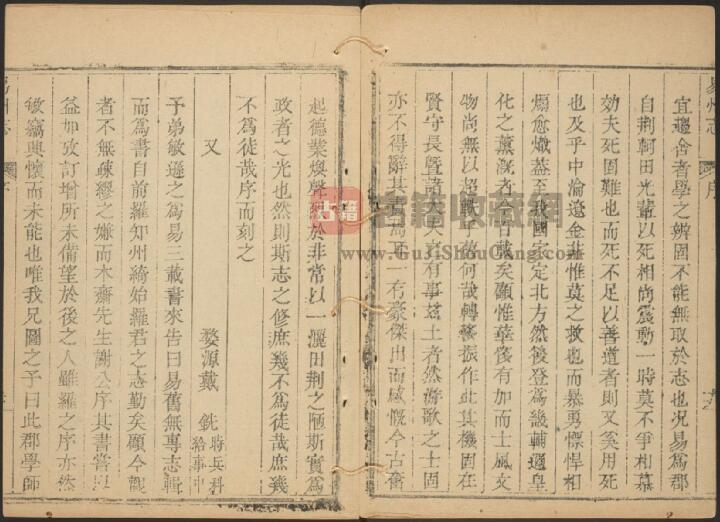 易州志 序
宜邇舍者學之辨固不能無取於志也况易爲郡
自荆軻田光輩以死相尚震動一時莫不爭相慕
効夫死固難也而死不足以善道者則又奚用死
也及乎中淪遼金葢惟莫之救也而暴勇慓悍相
煽愈熾葢至我國家定北方然後登爲畿輔邇皇
化之薰漑者今百載矣顧惟華后有加而士風文
物尚無以超軼乎 何哉轉移振作此其機固在
賢守長曁諸大夫之有事玆土者然 歌之士固
亦不得辭其責焉耳一有豪傑出而感慨今古奮
起德業煥聲 於非常以一灑田荆之陋斯實爲
政者之光也然則斯志之修庶幾不爲徒哉庶幾
不爲徒哉序而刻之
又
婺源戴 銑 給事中 兵科
予弟敏遜之爲易三載書來告曰易舊無專志輯
而爲書自前羅知州綺始羅君之志勤矣顧今觀
者不無疎繆之嫌而木齋先生謝公序其書普
益加攷訂增所未備望於後之人雖羅之序亦然
敏竊興懷而未能也唯我兄圖之予曰此郡學師
古籍
书籍收藏网
www.GuJiShouCang.com